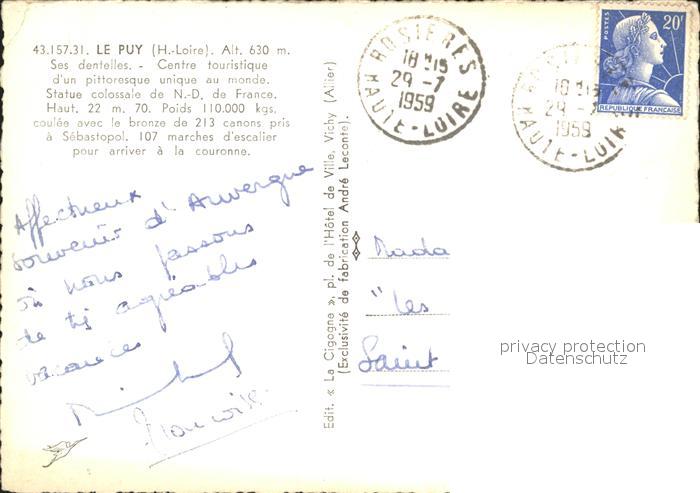 43.157.31. LE PUY (H.-Loire). Alt. 630 m.
Ses dentelles. - Centre touristique
d'un pittoresque unique au monde.
Statue colossale de N.-D. de France.
Haut. 22 m. 70. Poids 110.000 kgs,
coulée avec le bronze de 213 canons pris
à Sébastopol. 107 marches d'escalier
pour arriver à la couronne.
Affectueux
souvenir d'Auvergne
où nous passons
de très agréables
vacances
Françoise
Edit. « La Cigogne », pl. de l'Hôtel de Ville, Vichy (Allier)
(Exclusivité de fabrication André Leconte).
ROSIERES
18 H15
29 -7
1959
HAUTE-LOIRE
ROSIERES
18 H15
29 -7
1959
HAUTE-LOIRE
POSTES
20F
REPUBLIQUE FRANÇAISE
Mada
"les
Saint
privacy protection
Datenschutz